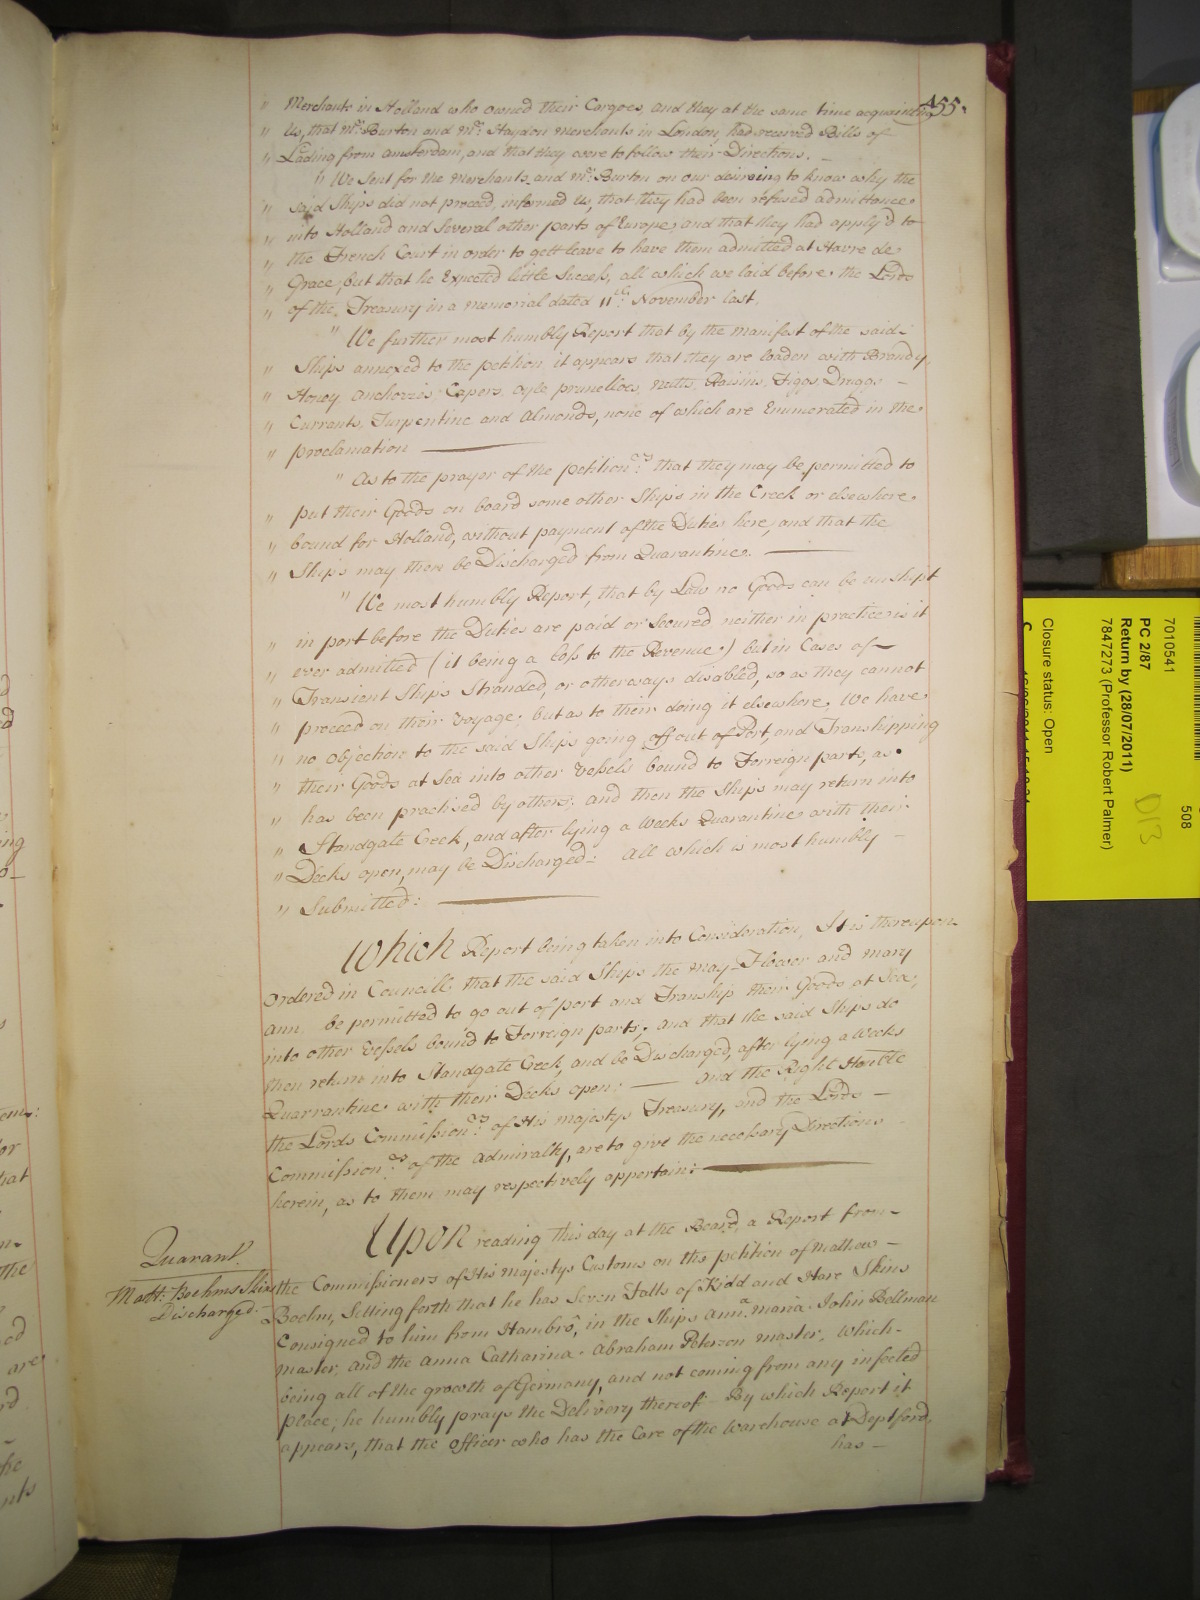 455.
" Merchants in Holland who owned their Cargoes, and they at the same time acquainting
" Us, that Mr. Burton and Mr. Haydon Merchants in London, had received Bills of
" Lading from Amsterdam, and that they were to follow their Directions. —
" We sent for the Merchants, and Mr. Burton on our desireing to know why the
" said Ships did not proceed, informed Us, that they had been refused admittance
" into Holland and several other parts of Europe, and that they had apply'd to
" the French Court in order to gett leave to have them admitted at Havre de
" Grace, but that he Expected little Success, all which we laid before the Lords
" of the Treasury in a memorial dated 11th: November last.
" We further most humbly Report that by the Manifest of the said
" Ships annexed to the petition it appears that they are loaden with Brandy,
" Honey, Anchovies, Capers, Oyle prunelloes, Nutts, Raisins, Figgs, Druggs —
" Currants, Turpentine and Almonds, none of which are Enumerated in the
" proclamation
" As to the prayer of the petitionrs: that they may be permitted to
" put their Goods on board some other Ships in the Creek or elsewhere
" bound for Holland, without payment of the Duties here, and that the
" Ships may then be Discharged from Quarantine. —
" We most humbly Report, that by Law no Goods can be unshipt
" in port before the Duties are paid or secured neither in practice is it
" ever admitted (it being a loss to the Revenue) but in Cases of
" Transient Ships Stranded, or otherways disabled, so as they cannot
" proceed on their Voyage; but as to their doing it elsewhere, We have
" no objection to the said Ships going off out of Port, and Transhipping
" their Goods at Sea into other Vessels bound to Forreign parts, as
" has been practised by others; and then the Ships may return into
" Standgate Creek, and after lying a Weeks Quarantine with their
" Decks open, may be Discharged: All which is most humbly —
" Submitted:
Which Report being taken into Consideration, It is thereupon
Ordered in Councill that the said Ships the May-Flower and Mary
Ann be permitted to go out of port and Tranship their Goods at Sea,
into other Vessels bound to Forreign parts; and that the said Ships do
then return into Standgate Creek, and be Discharged, after lying a Weeks
Quarrantine with their Decks open: — And the Right Honble
the Lords Commissionrs: of His Majestys Treasury, and the Lords —
Commissionrs: of the Admiralty, are to give the necessary Directions
herein, as to them may respectively appertain:
Quarant.
Matt: Boehms Skins
Discharged.
Upon reading this day at the Board, a Report from
the Commissioners of His Majestys Customs on the petition of Mathew —
Boehm, Setting forth that he has Seven Fatts of Kidd and Hare Skins
Consigned to him from Hambro', in the Ships Anna Maria. John Bellman
master, and the Anna Catharina. Abraham Peterson master, Which
being all of the growth of Germany, and not coming from any infected
place; he humbly prays the Delivery thereof — By which Report it
appears, that the Officer who has the Care of the Warehouse at Deptford,
has —
7010541
PC 2/87
Return by (28/07/2011)
7847273 (Professor Robert Palmer)
Closure status: Open
508
D13